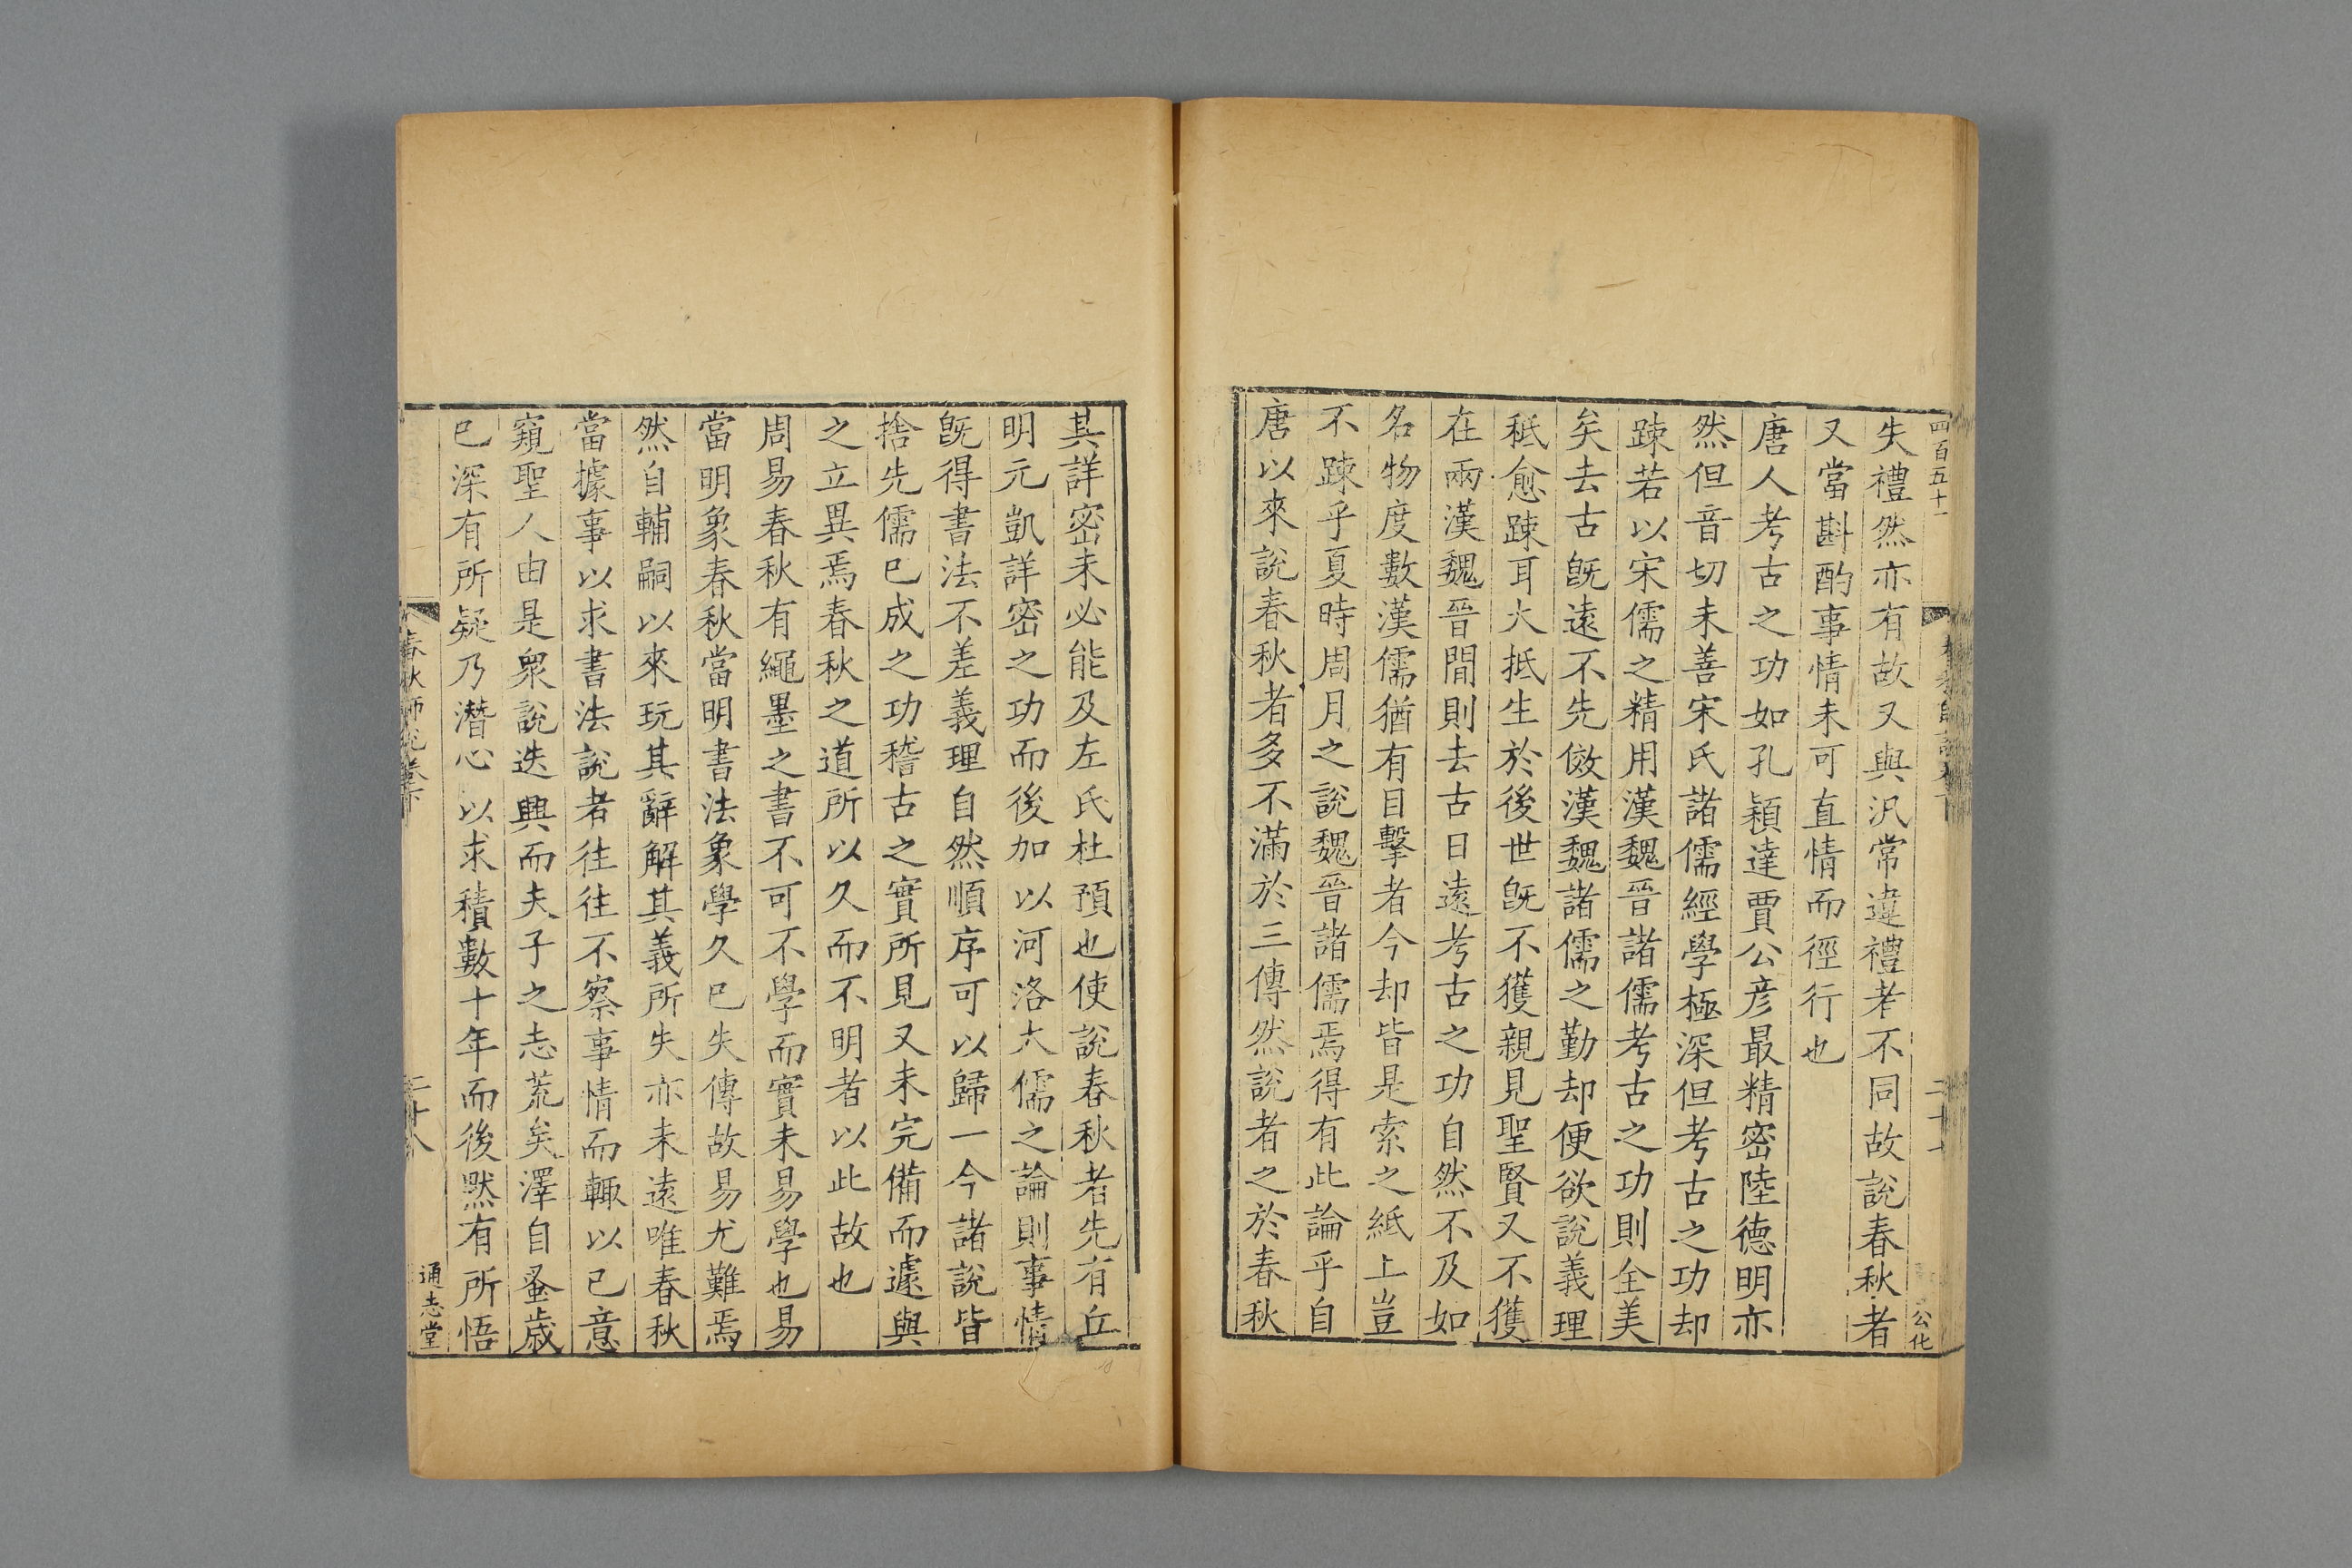 四百五十一
二十七
公化
失禮然亦有故又與汎常違禮者不同故說春秋者
又當斟酌事情未可直情而徑行也
唐人考古之功如孔穎達賈公彥最精密陸德明亦
然但音切未善宋氏諸儒經學極深但考古之功却
踈若以宋儒之精用漢魏晉諸儒考古之功則全美
矣去古旣遠不先傚漢魏諸儒之勤却便欲說義理
秪愈踈耳大抵生於後世旣不獲親見聖賢又不獲
在兩漢魏晉間則去古日遠考古之功自然不及如
名物度數漢儒猶有目擊者今却皆是索之紙上豈
不踈乎夏時周月之說魏晉諸儒焉得有此論乎自
唐以來說春秋者多不滿於三傳然說者之於春秋
其詳密未必能及左氏杜預也使說春秋者先有丘
明元凱詳密之功而後加以河洛大儒之論則事情
旣得書法不差義理自然順序可以歸一今諸說皆
捨先儒已成之功稽古之實所見又未完備而遽與
之立異焉春秋之道所以久而不明者以此故也
周易春秋有繩墨之書不可不學而實未易學也易
當明象春秋當明書法象學久已失傳故易尤難焉
然自輔嗣以來玩其辭解其義所失亦未遠唯春秋
當據事以求書法說者往往不察事情而輒以已意
窺聖人由是衆說迭興而夫子之志荒矣澤自蚤歲
已深有所疑乃潛心以求積數十年而後黙有所悟
春秋師說卷下
二十八
通志堂